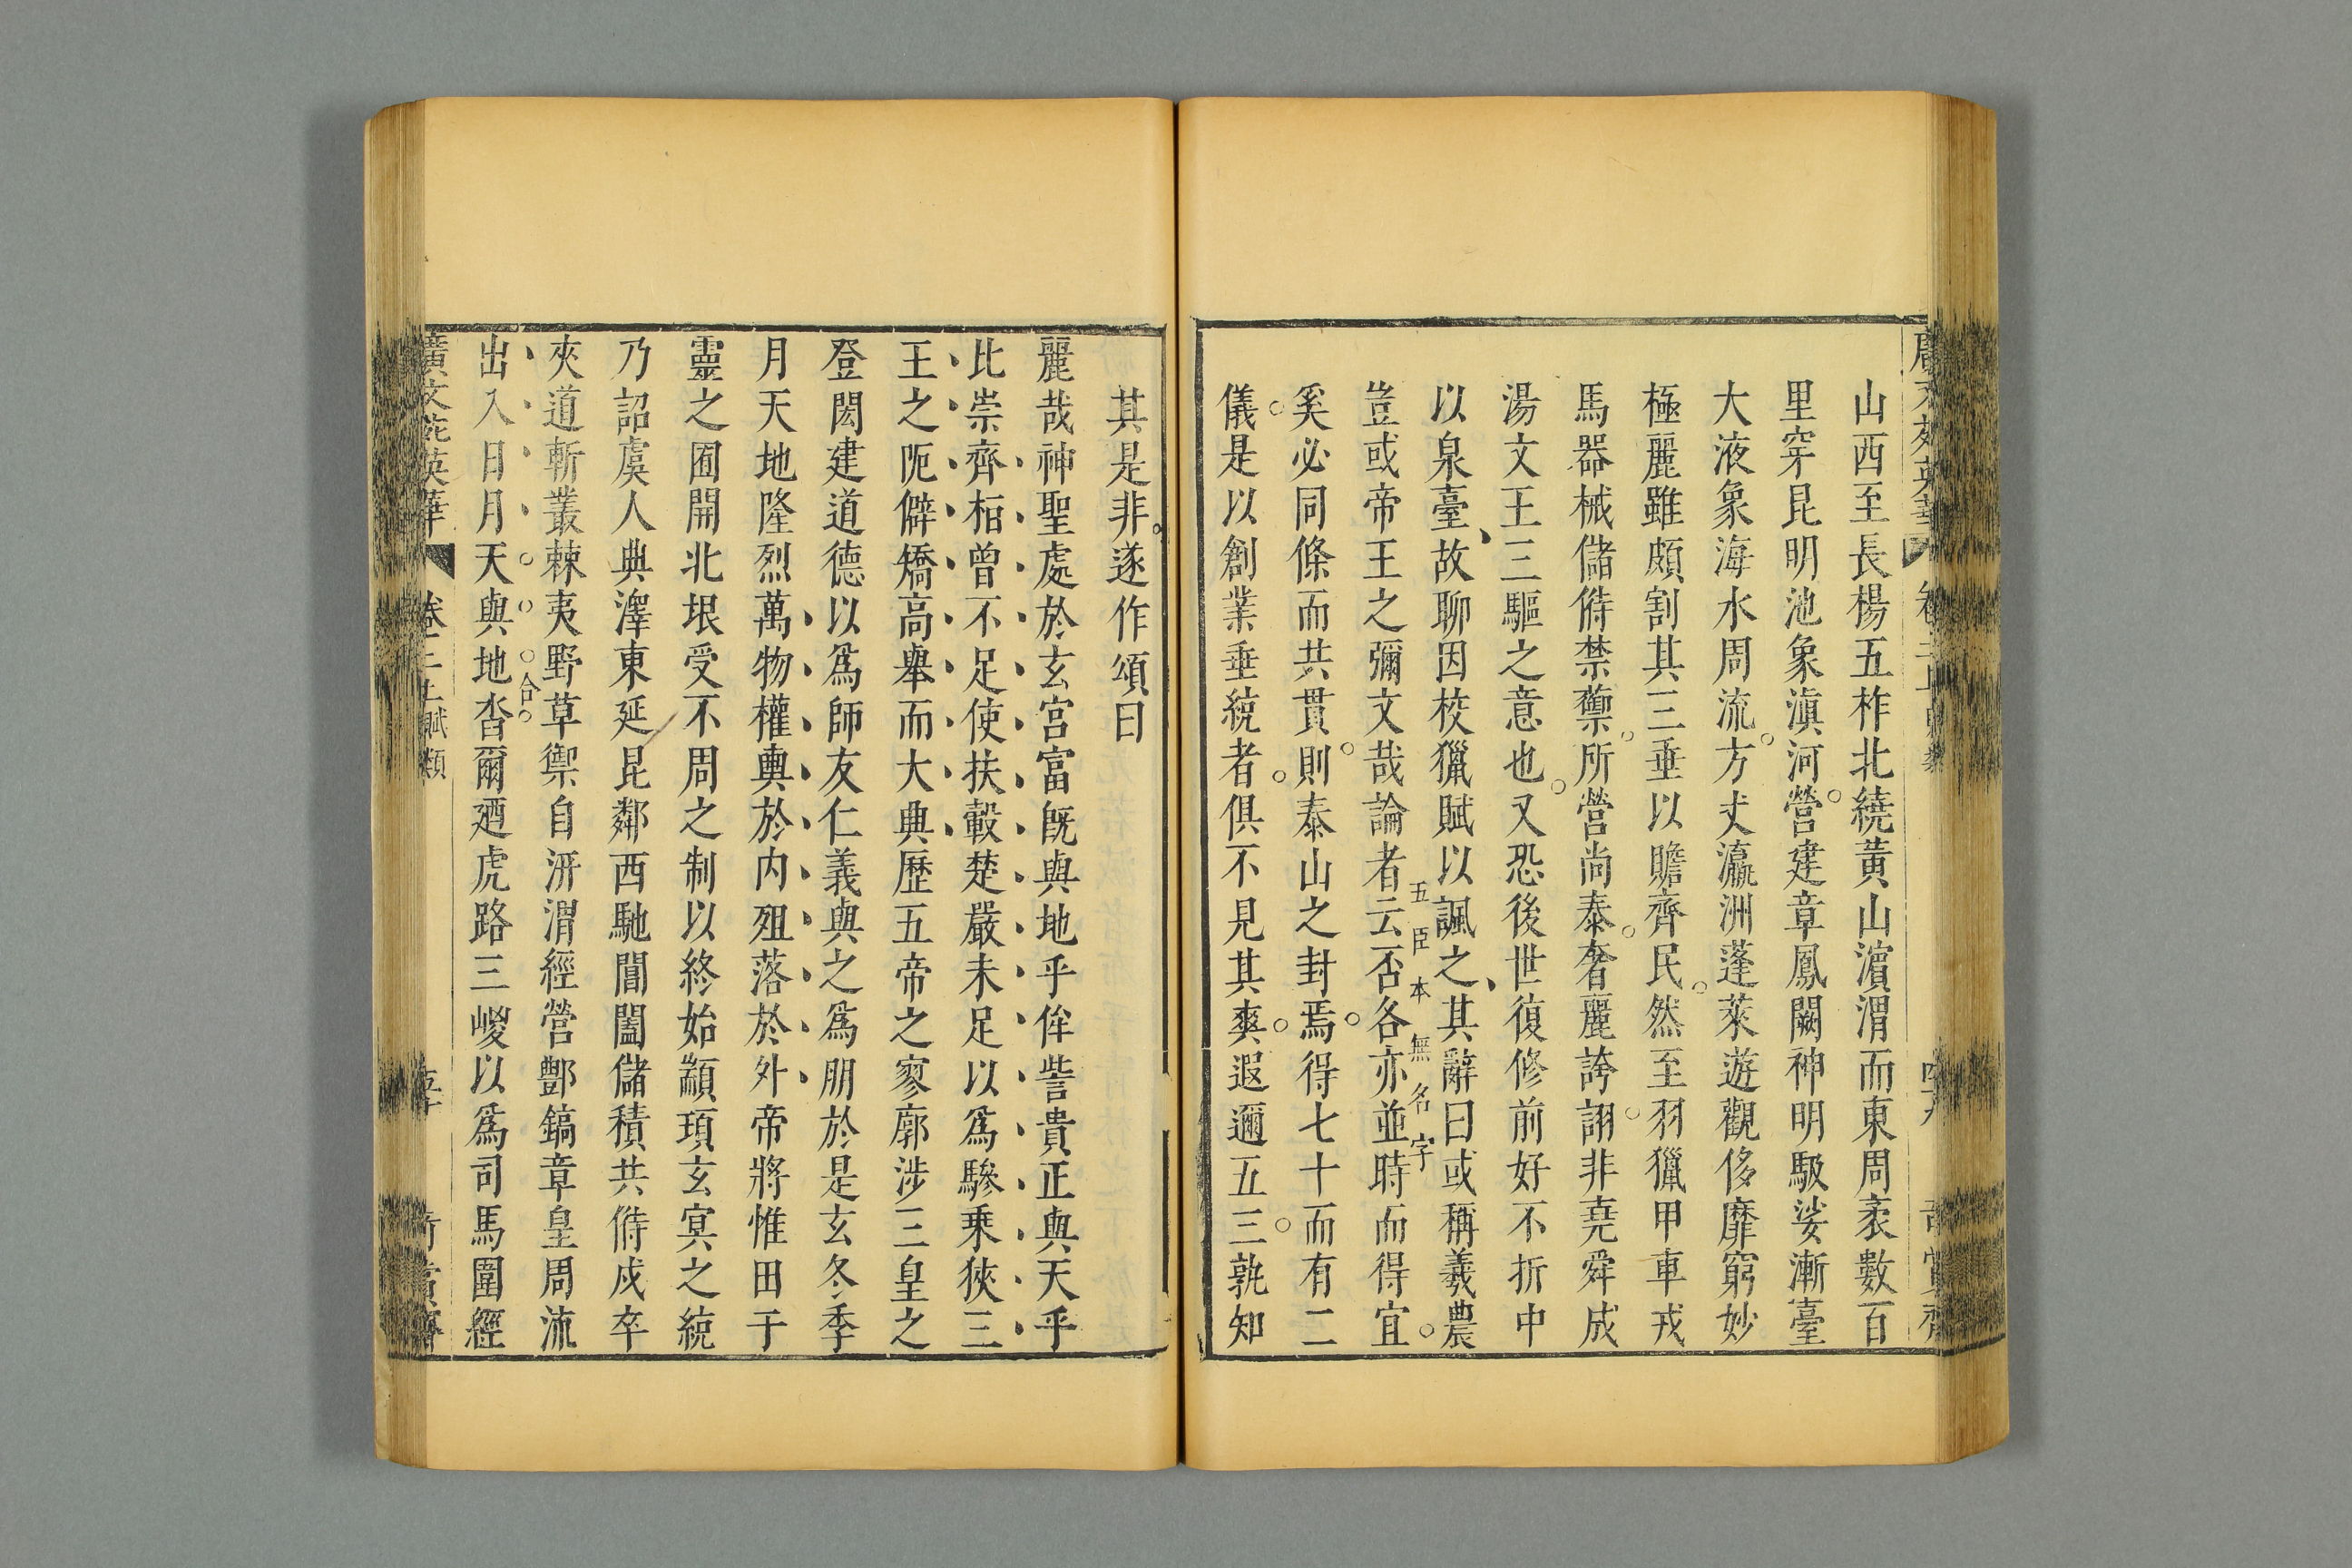 山西至長楊五柞北繞黃山濵渭而東周袤數百
里穿昆明池象滇河營建章鳳闕神明駊娑漸臺
大液象海水周流方丈瀛洲蓬萊遊觀侈靡窮妙
極麗雖頗割其三垂以贍齊民然至羽獵甲車戎
馬器械儲偫禁籞所營尚泰奢麗誇詡非堯舜成
湯文王三驅之意也又恐後世復修前好不折中
以泉臺故聊因校獵賦以諷之其辭曰或稱羲農
五臣本無名字
豈或帝王之彌文哉論者云否各亦並時而得宜
奚必同條而共貫則泰山之封焉得七十而有二
儀是以創業垂統者俱不見其爽遐邇五三孰知
其是非遂作頌曰
麗哉神聖處於玄宮富既與地乎侔訾貴正與天乎
比崇齊桓曾不足使扶轂楚嚴未足以爲驂乗狹三
王之阨僻矯高舉而大典歷五帝之寥廓涉三皇之
登閎建道德以爲師友仁義與之爲朋於是玄冬季
月天地隆烈萬物權輿於内殂落於外帝將惟田于
靈之囿開北垠受不周之制以終始顓頊玄冥之統
乃詔虞人典澤東延昆鄰西馳閶闔儲積共偫戍卒
夾道斬叢棘夷野草禦自汧渭經營酆鎬章皇周流
出入日月天與地沓爾廼虎路三嵕以爲司馬圍經
合
廣文苑英華 卷二上賦類